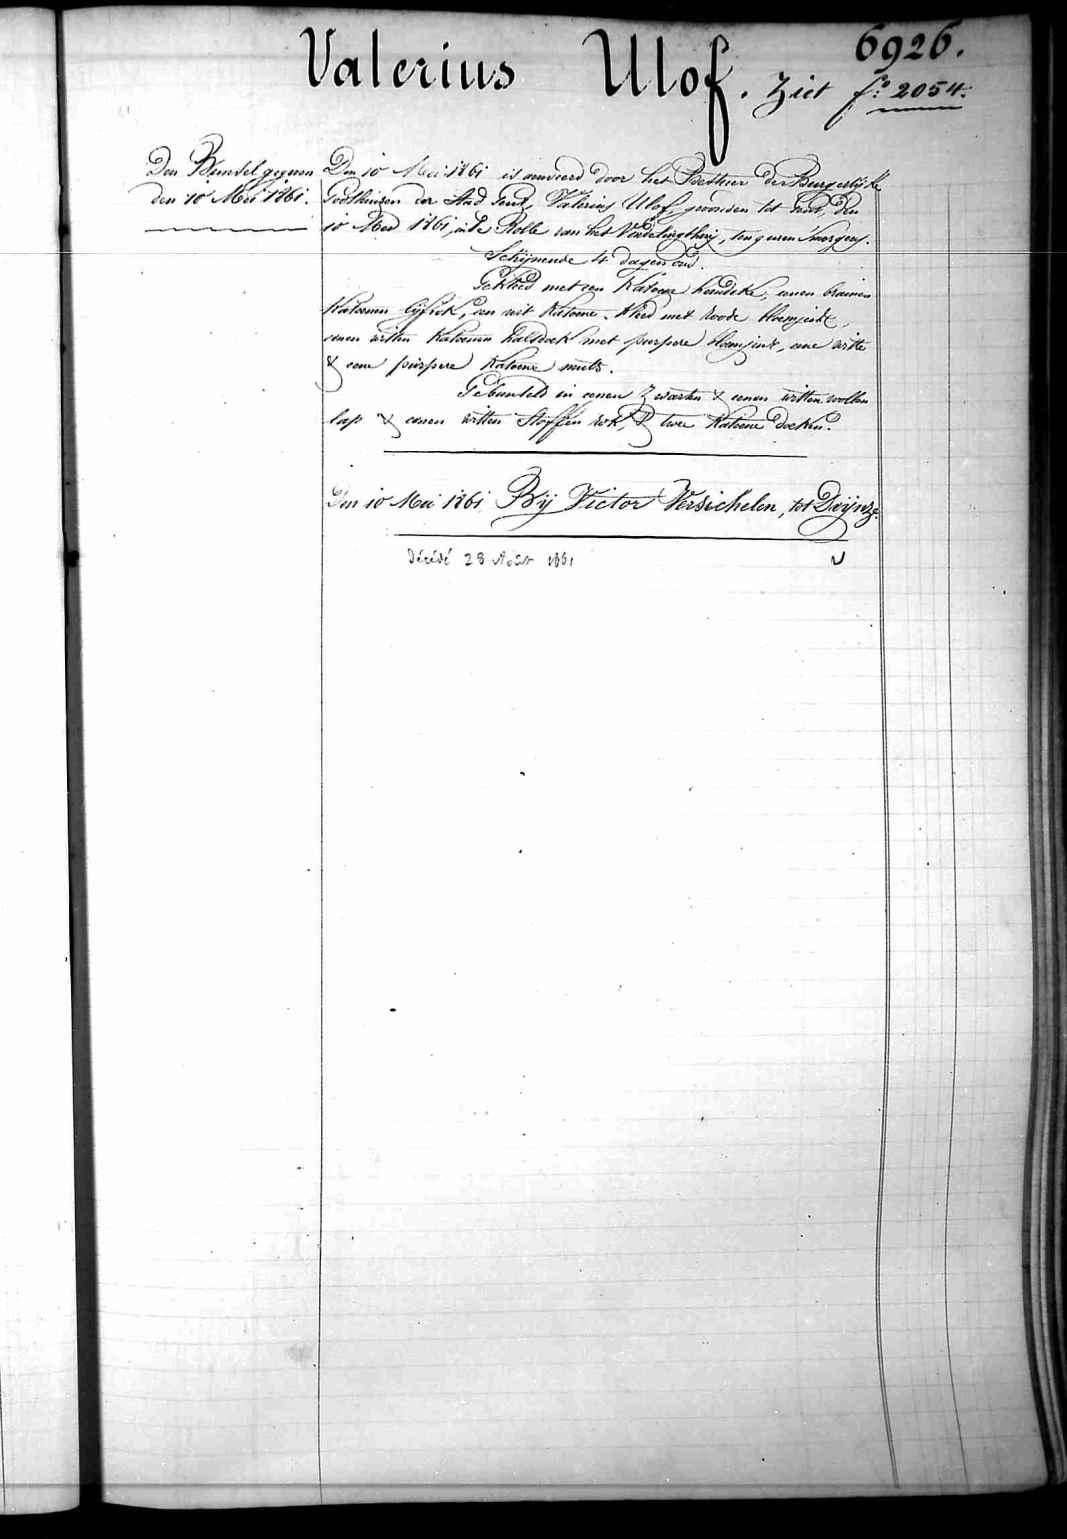 6926.
Valerius Ulof. Ziet f° 2054.
Den Bundel gegeven
den 10 Mei 1861.
Den 10 Mei 1861 is aenveerd door het Bestuer der Burgerlijke
Godshuizen der Stad Gend, Valerius Ulof, gevonden tot Gend, den
10 Mei 1861, in de Rolle van het Vondelinghuis, ten 4 uren 's morgens.
Schijnende 4 dagen oud.
Gekleed met een Katoene hemdeke, eenen bruinen
Katoenen lijfrok, een wit Katoene Kleed met roode bloemjens,
eenen witten Katoenen halsdoek met purpere bloemjens, eene witte
& eene purpere Katoene muts.
Gebundeld in eenen zwarten & eenen witten wollen
lap & eenen witten Stoffen rok, & twee Katoene doeken.
Den 10 Mei 1861 Bij Victor Versichelen, tot Deijnze.
Décédé 28 Août 1861